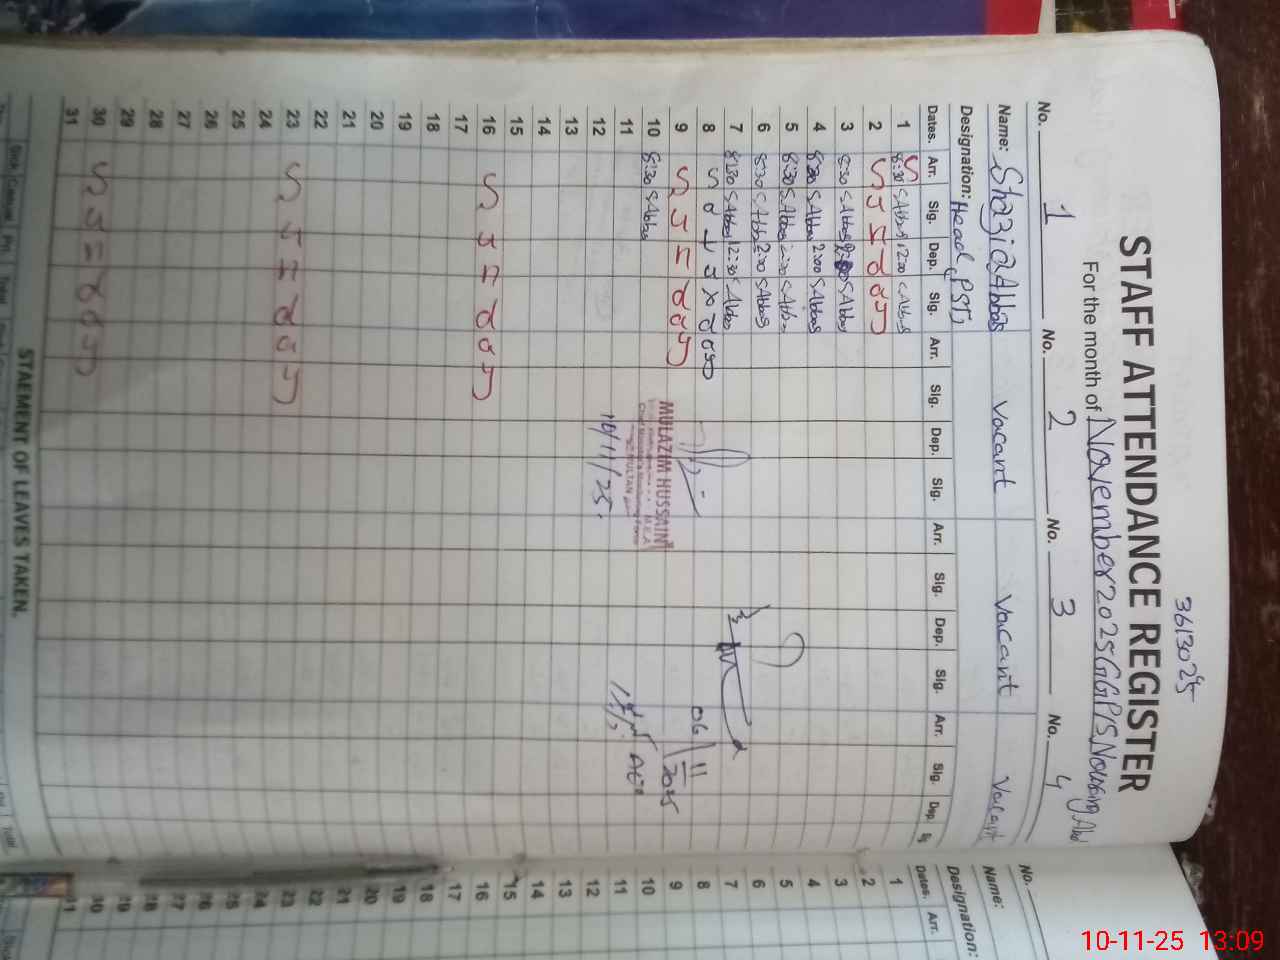 3613025
STAFF ATTENDANCE REGISTER
For the month of November 2025 GGP/S, Nousing Abd
No. 1 No. 2 No. 3 No. 4
Name: Shazia Abbas Vacant Vacant Vacant
Designation: Head (PST)
Dates. Arr. Sig. Dep. Sig. Arr. Sig. Dep. Sig. Arr. Sig. Dep. Sig. Arr. Sig. Dep.
1 8:30 SAbbas 12:30 SAbbas
2 S U N D A Y
3 8:30 SAbbas SAbbas
4 8:30 SAbbas 2:00 SAbbas
5 8:30 SAbbas 2:00 SAbbas
6 8:30 SAbbas 2:00 SAbbas
7 8:30 SAbbas 12:30 SAbbas
8
9 S U N D A Y
10 8:30 SAbbas
11
12
13
14
15
16 S U N D A Y
17
18
19
20
21
22
23 S U N D A Y
24
25
26
27
28
29
30 S U N D A Y
31
MULAZIM HUSSAIN
M.E.A
Chief Minister's Monitoring Force
MULTAN
10/11/25.
06/11/2025
AEO
STAEMENT OF LEAVES TAKEN.
No.
Name:
Designation:
Dates. Arr.
1
2
3
4
5
6
7
8
9
10
11
12
13
14
15
16
17
18
19
20
21
22
23
24
25
26
27
28
29
30
31
10-11-25 13:09